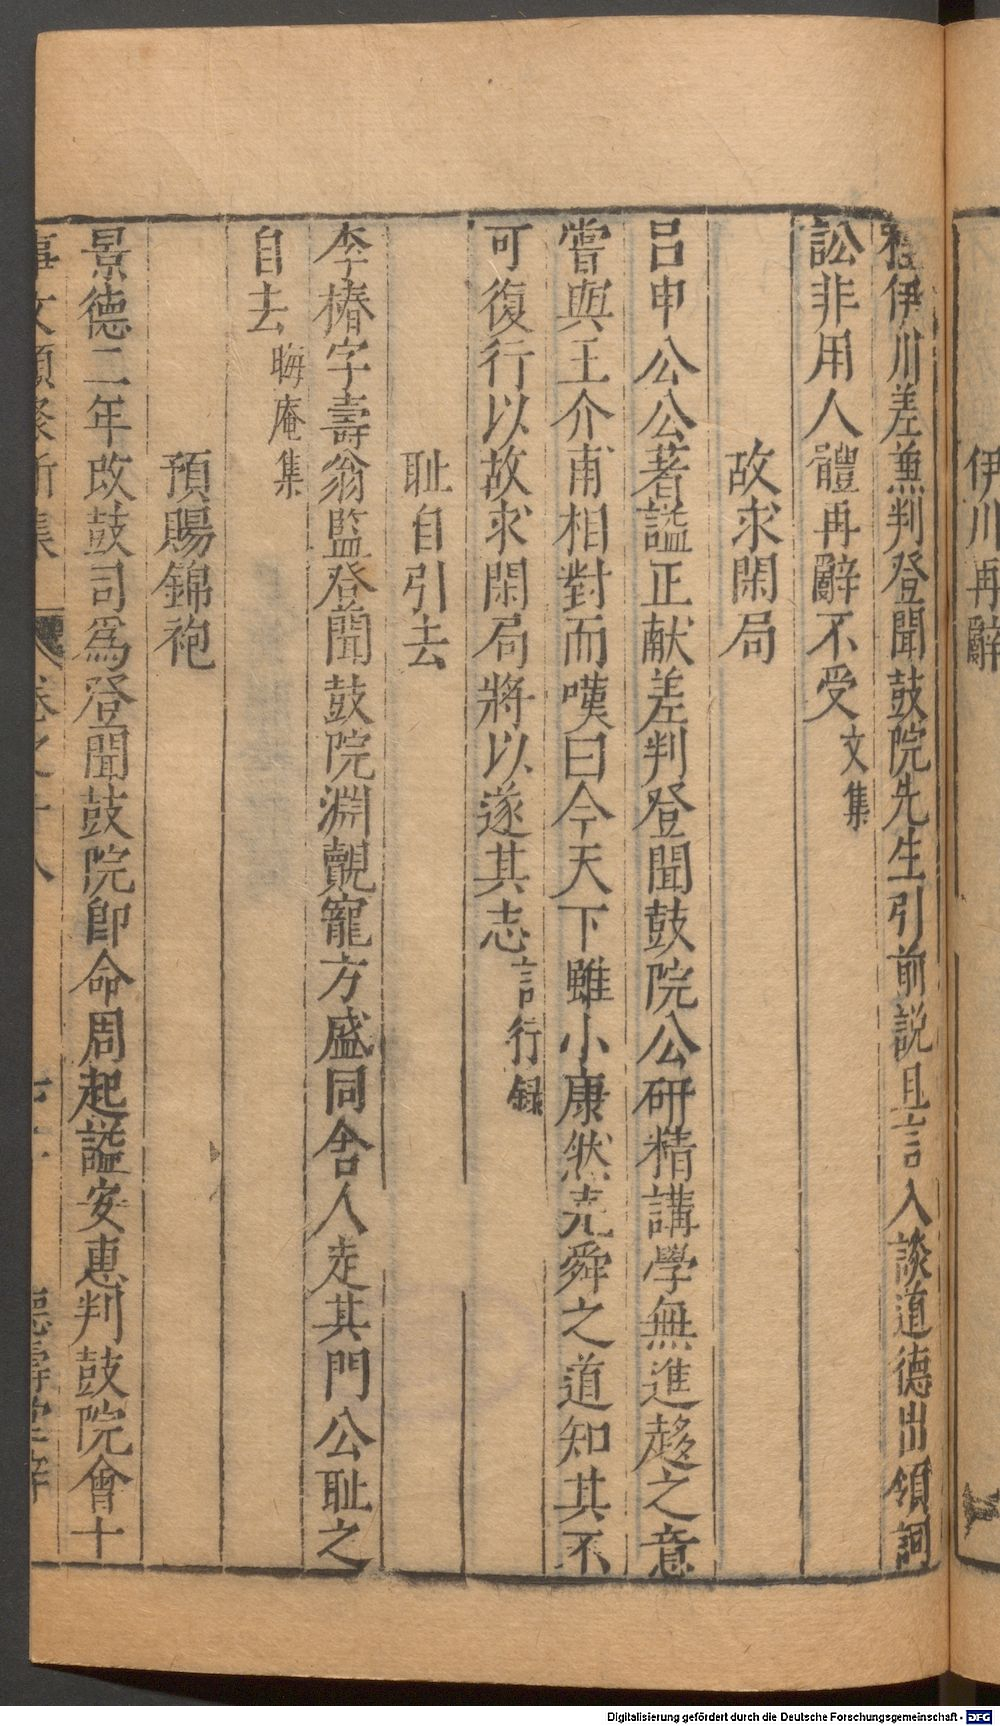 伊川再辭
程伊川差兼判登聞鼓院先生引前説且言入談道德出領詞
訟非用人體再辭不受文集
故求閑局
呂申公公著謚正献差判登聞鼓院公研精講學無進趍之意
嘗與王介甫相對而嘆曰今天下雖小康然尭舜之道知其不
可復行以故求閑局將以遂其志言行録
耻自引去
李椿字壽翁監登聞鼓院淵覿寵方盛同舍人走其門公耻之
自去晦庵集
預賜錦袍
景德二年改鼓司爲登聞鼓院即命周起謚安惠判鼓院會十
事文類聚新集 卷之十八 德壽堂梓
Digitalisierung gefördert durch die Deutsche Forschungsgemeinschaft - DFG